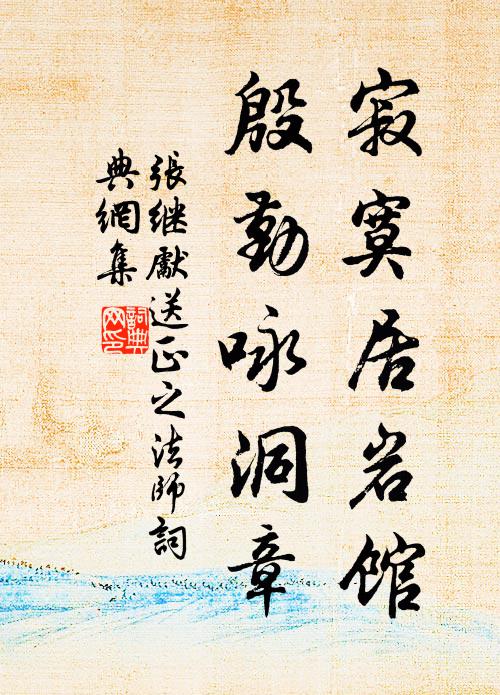 寂寞居岩馆
殷勤咏洞章
張继獻送正之法師詞
典網集
詞典網印